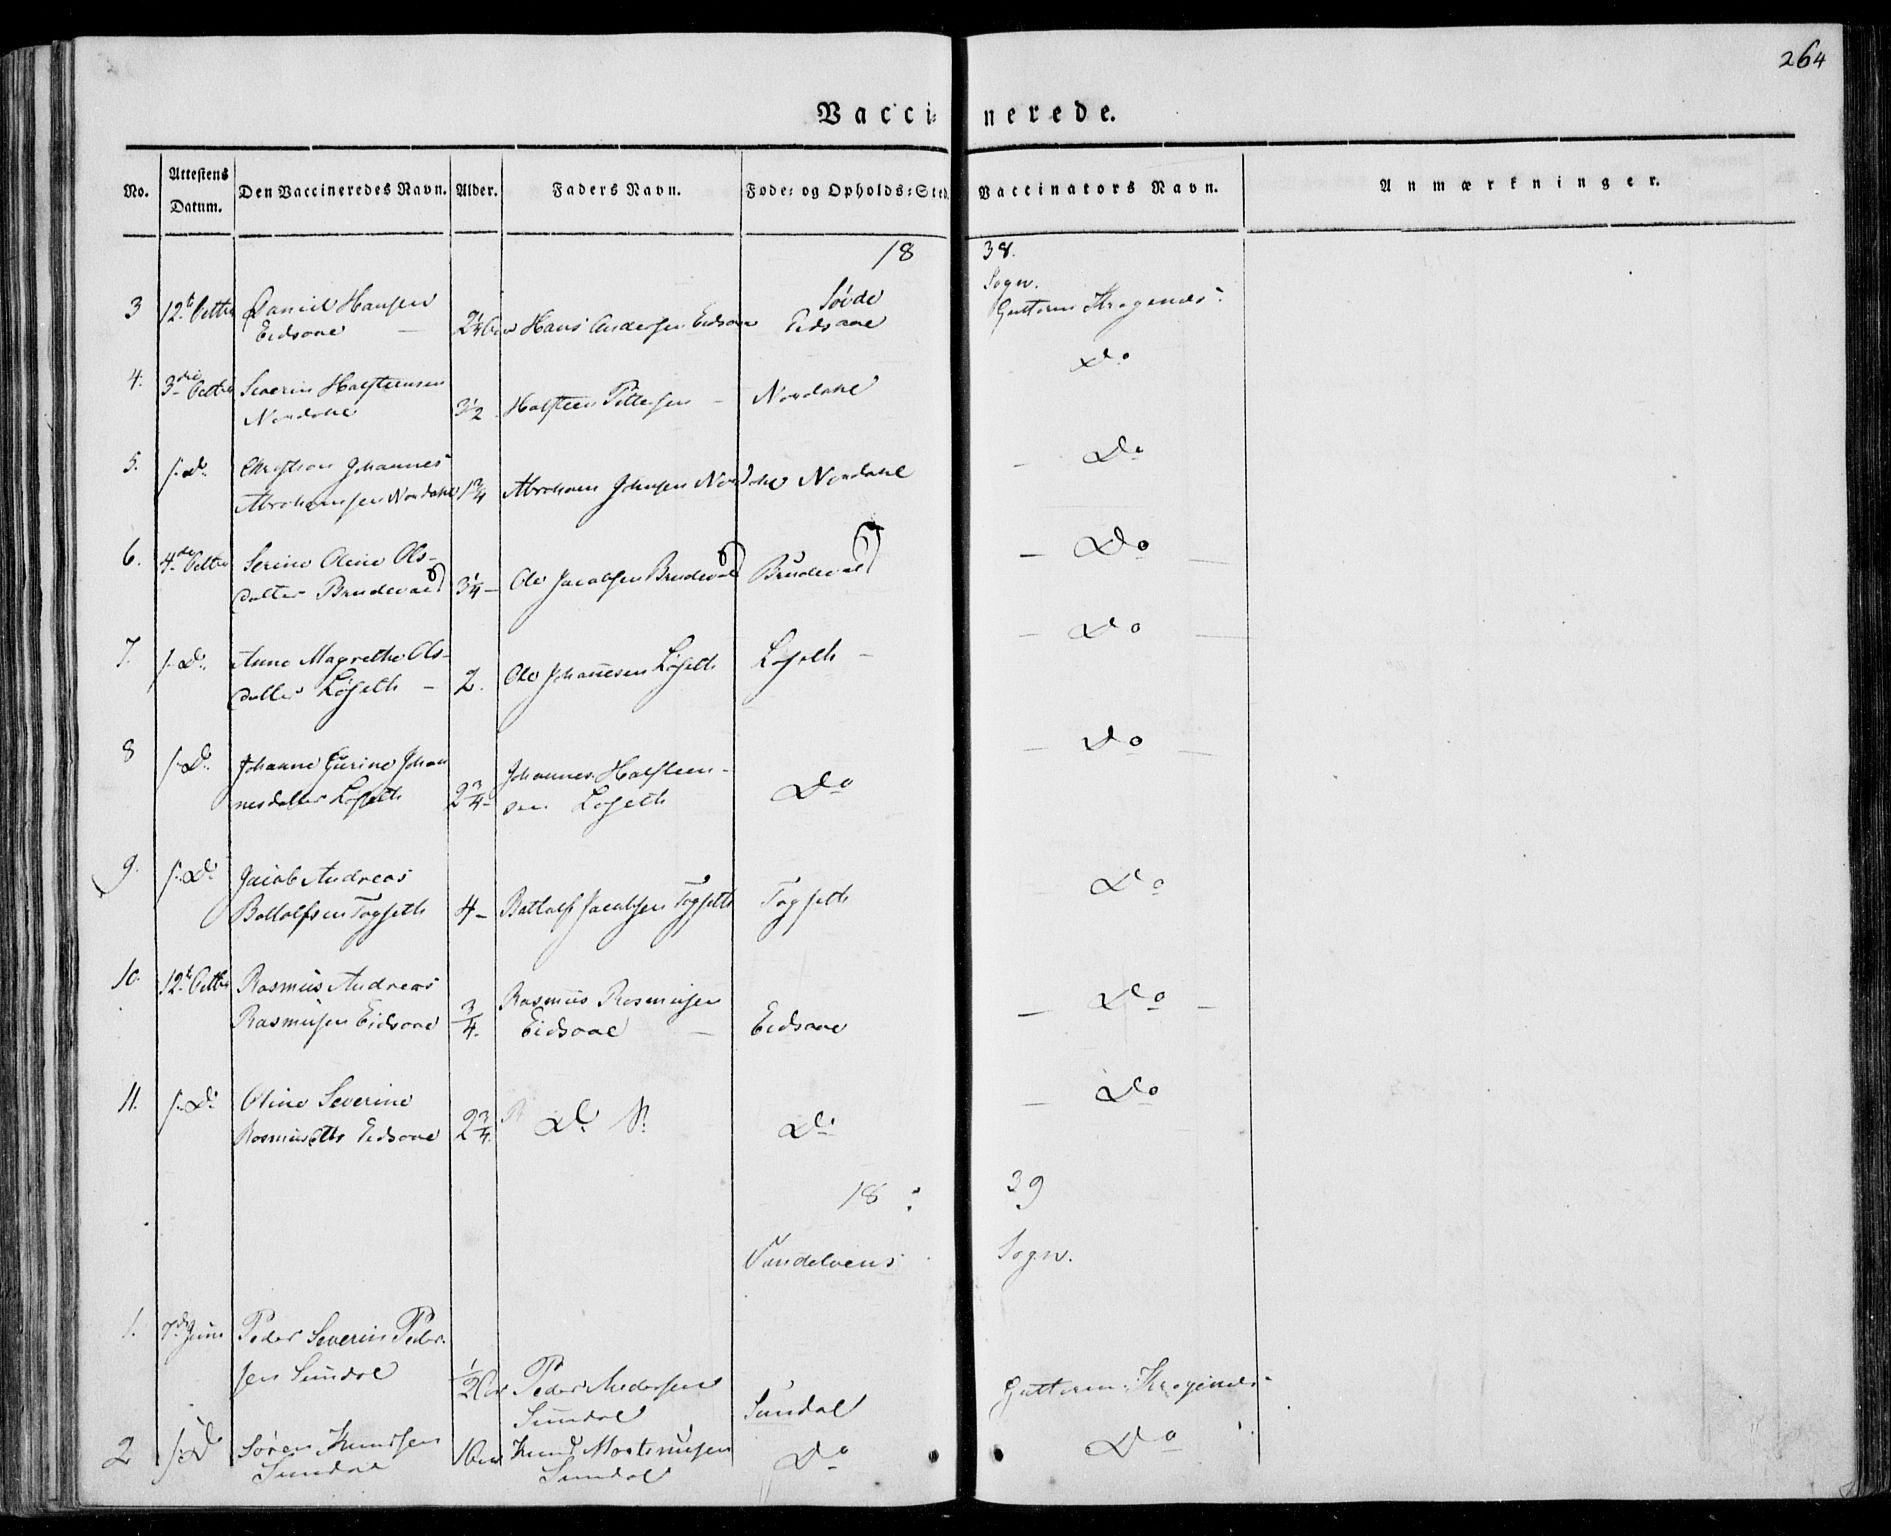 264
Vacci- nerede.
No. Attestens Datum. Den Vaccineredes Navn. Alder. Faders Navn. Føde- og Opholds-Sted. Vaccinators Navn. Anmærkninger.
18 38.
Søvde Sogn.
3 12te Octbr Daniel Hansen
Eidsaae 2¼ Hans Andersen Eidsaae Eidsaae Guttorm Kragenes
4. 3die Octbr Severin Halsteensen
Nordahl 3½ Halsteen Pettersen – Nordahl Do
5. s. D. Johannes
Abrahamsen Nordahl 1¾ Abraham Johnsen Nordahl Nordahl Do
6. 4de Octbr Serine Oline Ols-
datter Brudevold 3¼ – Ole Jacobsen Brudevold Brudevold – Do –
7. s. D. Anne Magrethe Ols-
datter Løseth – 2. Ole Johannesen Løseth Løseth – – Do –
8 s. D. Johanne Gurine Johan
nesdatter Løseth 2¾ – Johannes Halsteen-
sen Løseth Do – Do –
9. s. D. Jacob Andreas
Bottolfsen Tagseth 4 – Bottolf Jacobsen Tagseth Tagseth Do
10. 12te Octbr Rasmus Andreas
Rasmusen Eidsaae ¾. Rasmus Rasmusen
Eidsaae – Eidsaae – Do –
11. s. D. Oline Severine
Rasmusdtr Eidsaae 2¾. Do Do – Do
18 39
Vandelvens Sogn.
1. 7de Juni Peder Severin Peder-
sen Sundal ½ Peder Andersen
Sundal Sundal Guttorm Kragenes
2 s. D Søren Knudsen
Sundal 1 Knud Mortensen
Sundal Do Do